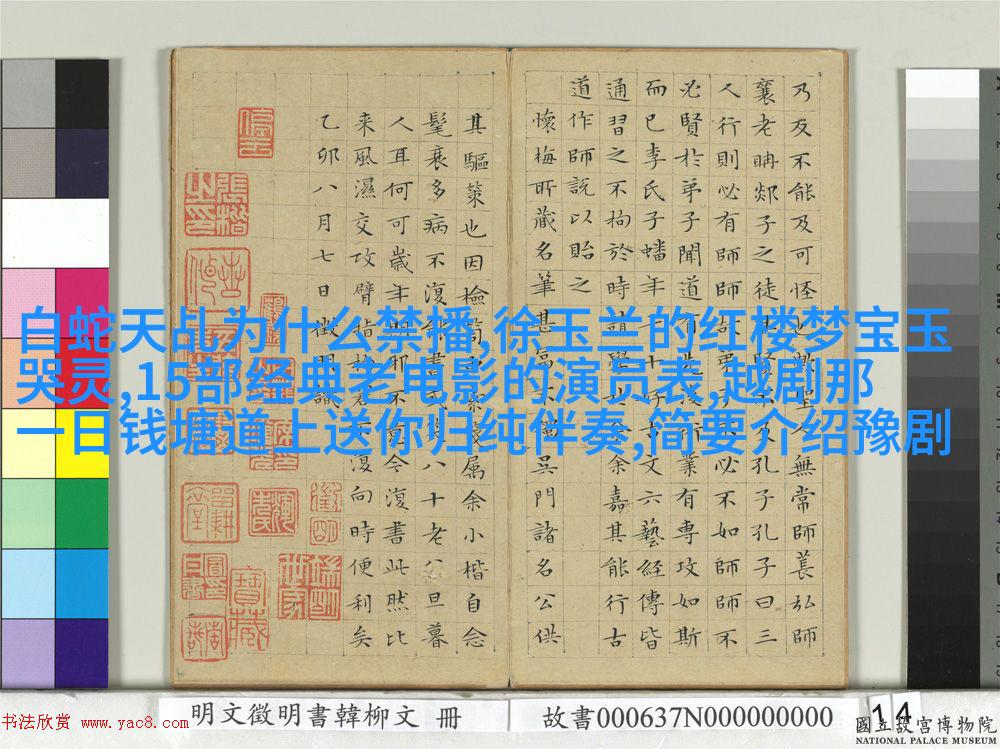 白蛇天乩为什么禁播,徐玉兰的红楼梦宝玉
哭灵,15部经典老电影的演员表,越剧那
一日钱塘道上送你归纯伴奏,简要介绍豫剧
乃反不能及可怪也歟聖人無常師萇弘師
襄老聃郯子之徒其賢不及孔子孔子曰三
人行則必有師師故弟子不必不如師師不
必賢於弟子聞道有先後術業有專攻如斯
而已李氏子蟠年十七好古文六藝經傳皆
通習之不拘於時請學於余余嘉其能行古
道作師說以貽之
懷梅所藏名筆甚富不吳門諸名公供
其驅策也因檢屬余小楷自念
髦衰多病不復八十老公旦暮
人耳何可歲年期耶不今復書此然比
来風濕交攻臂指復向時便利矣
乙卯八月七日徵明識
明文徵明書韓柳文 冊
故書000637N000000000
14
國立故宮博物院
NATIONAL PALACE MUSEUM
书法欣赏 www.yac8.com